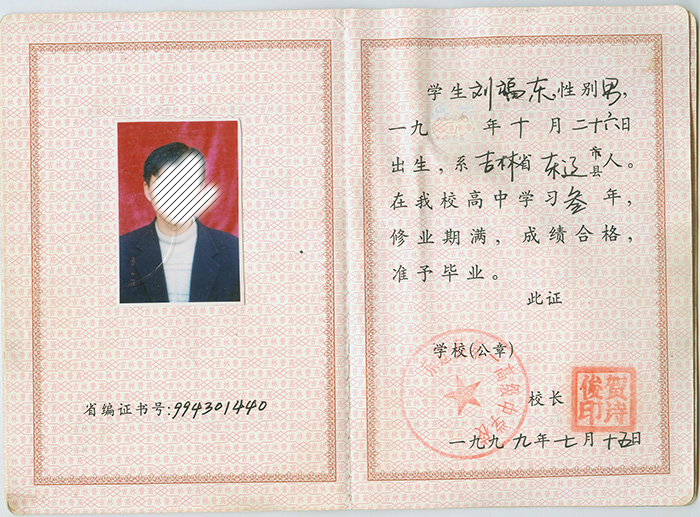 省编证书号:994301440
学生刘福东,性别男,
一九 年十月二十六日
出生,系吉林省东辽市县人。
在我校高中学习叁年,
修业期满,成绩合格,
准予毕业。
此证
学校(公章)
高级中学校
校长
贺
俊印
一九九九年七月十五日